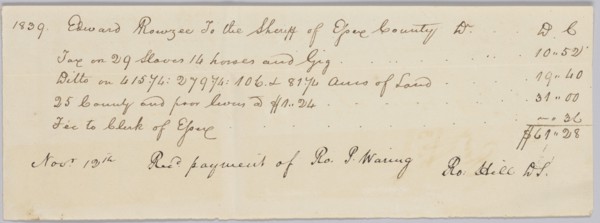 1839. Edward Rowzee To the Sheriff of Essex County Dr. D C
Tax on 29 Slaves 14 horses and Gig 10"52
Ditto on 415¾: 279¾: 106 & 81¾ Acres of Land 19"40
25 County and poor levies @ $1"24 31"00
Fee to Clerk of Essex —"36
$61"28
Novr 13th Recd payment of Ro. P. Waring Ro. Hill D.S.